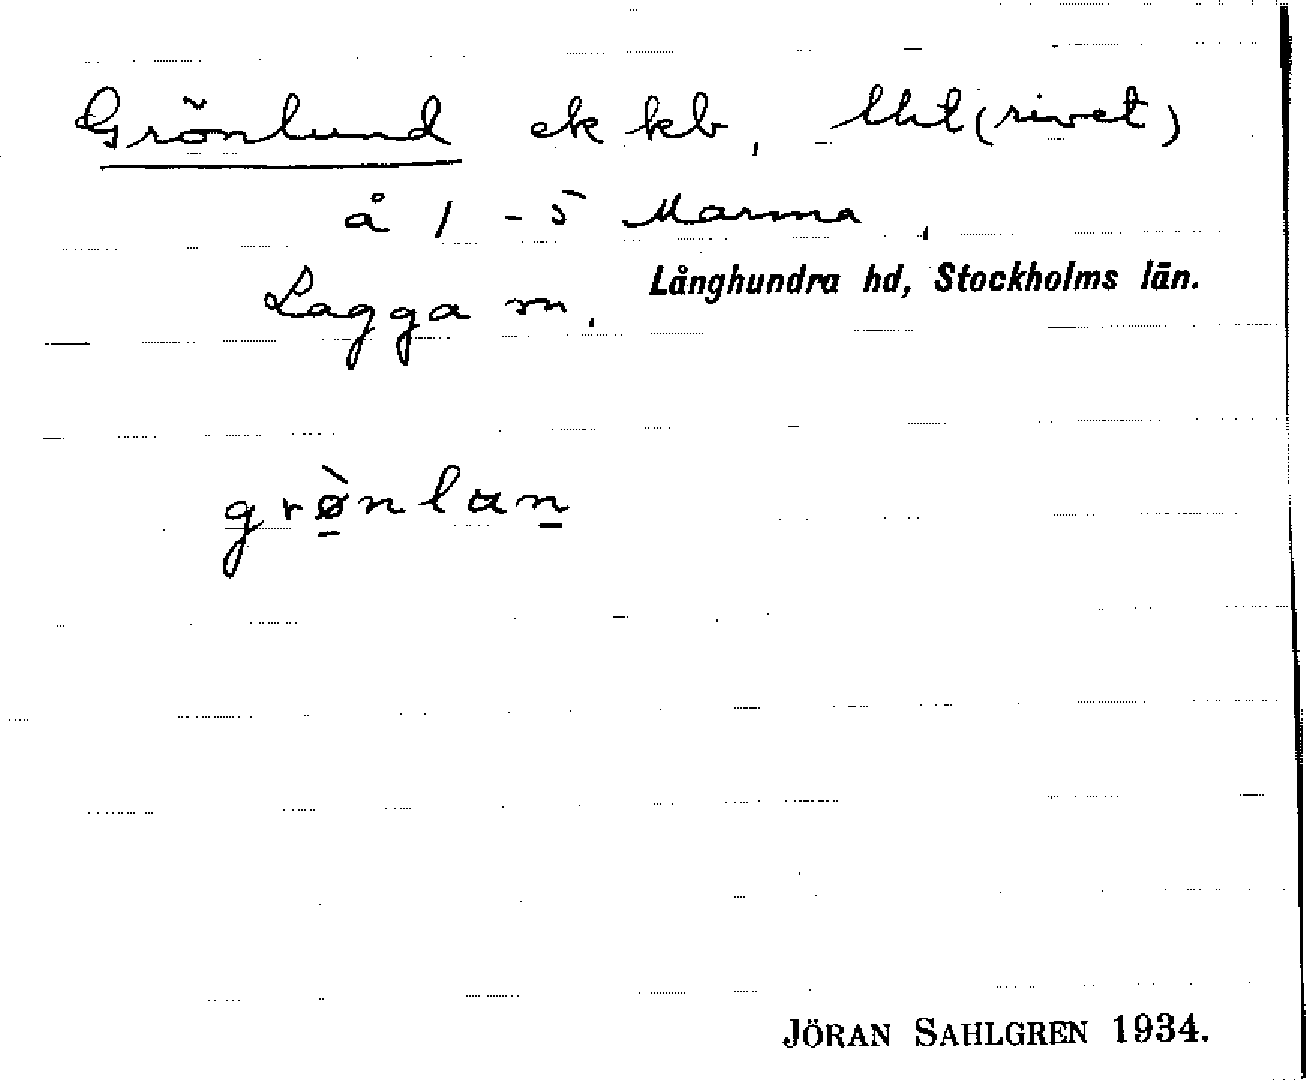 Grönlund ek kb, lht (rivet)
å 1 - 5 Marma,
Lagga sn. Långhundra hd, Stockholms län.
grø̀nlan
JÖRAN SAHLGREN 1934.